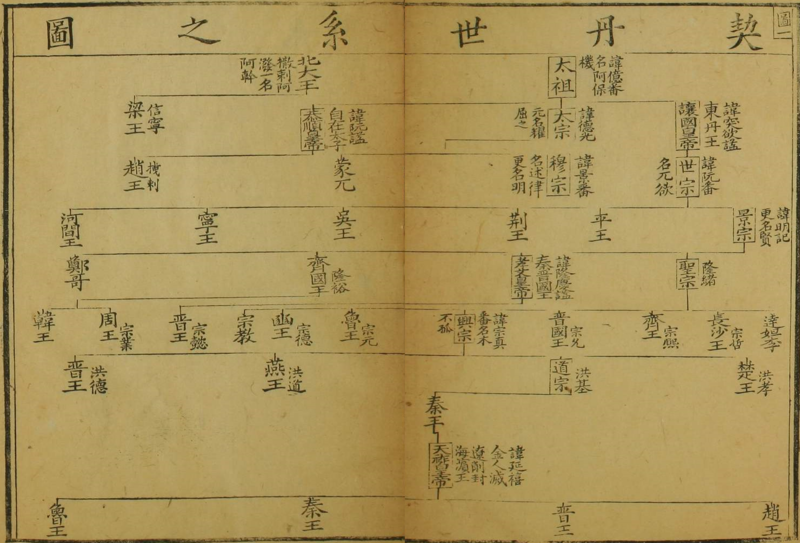 契丹世系之圖
圖一
太祖
諱億番
名阿保
機
北大王
撒剌阿
潑一名
阿幹
諱突欲謚
東丹王
讓國皇帝
諱德光
太宗
元名耀
屈之
諱阮謚
自在太子
恭順皇帝
信寧
梁王
諱阮番
世宗
名兀欲
諱景番
穆宗
名述律
更名明
蒙兀
機剌
趙王
諱明記
更名賢
景宗
平王
荆王
吳王
寧王
河間王
隆緒
聖宗
諱隆慶謚
秦晉國王
孝文皇帝
隆裕
齊國王
鄭哥
達妲李
長沙王
宗熙
齊王
宗允
晉國王
諱宗真
番名木
不孤
興宗
宗元
魯王
宗德
幽王
宗教
宗懿
晉王
宗業
周王
韓王
洪孝
楚王
洪基
道宗
洪道
燕王
洪德
晉王
秦王
諱延禧
金人滅
遼削封
海濱王
天祚皇帝
趙王
晉王
秦王
魯王